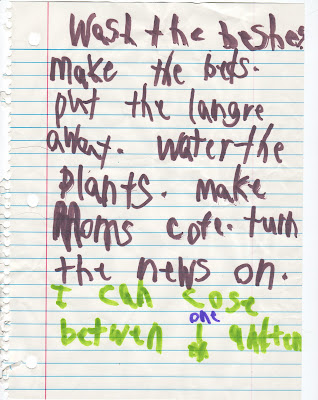 Wash the beshes
make the bets.
put the langre
awhat. water the
plants. make
Moms cofe. turn
the news on.
I can cose
one
betwen